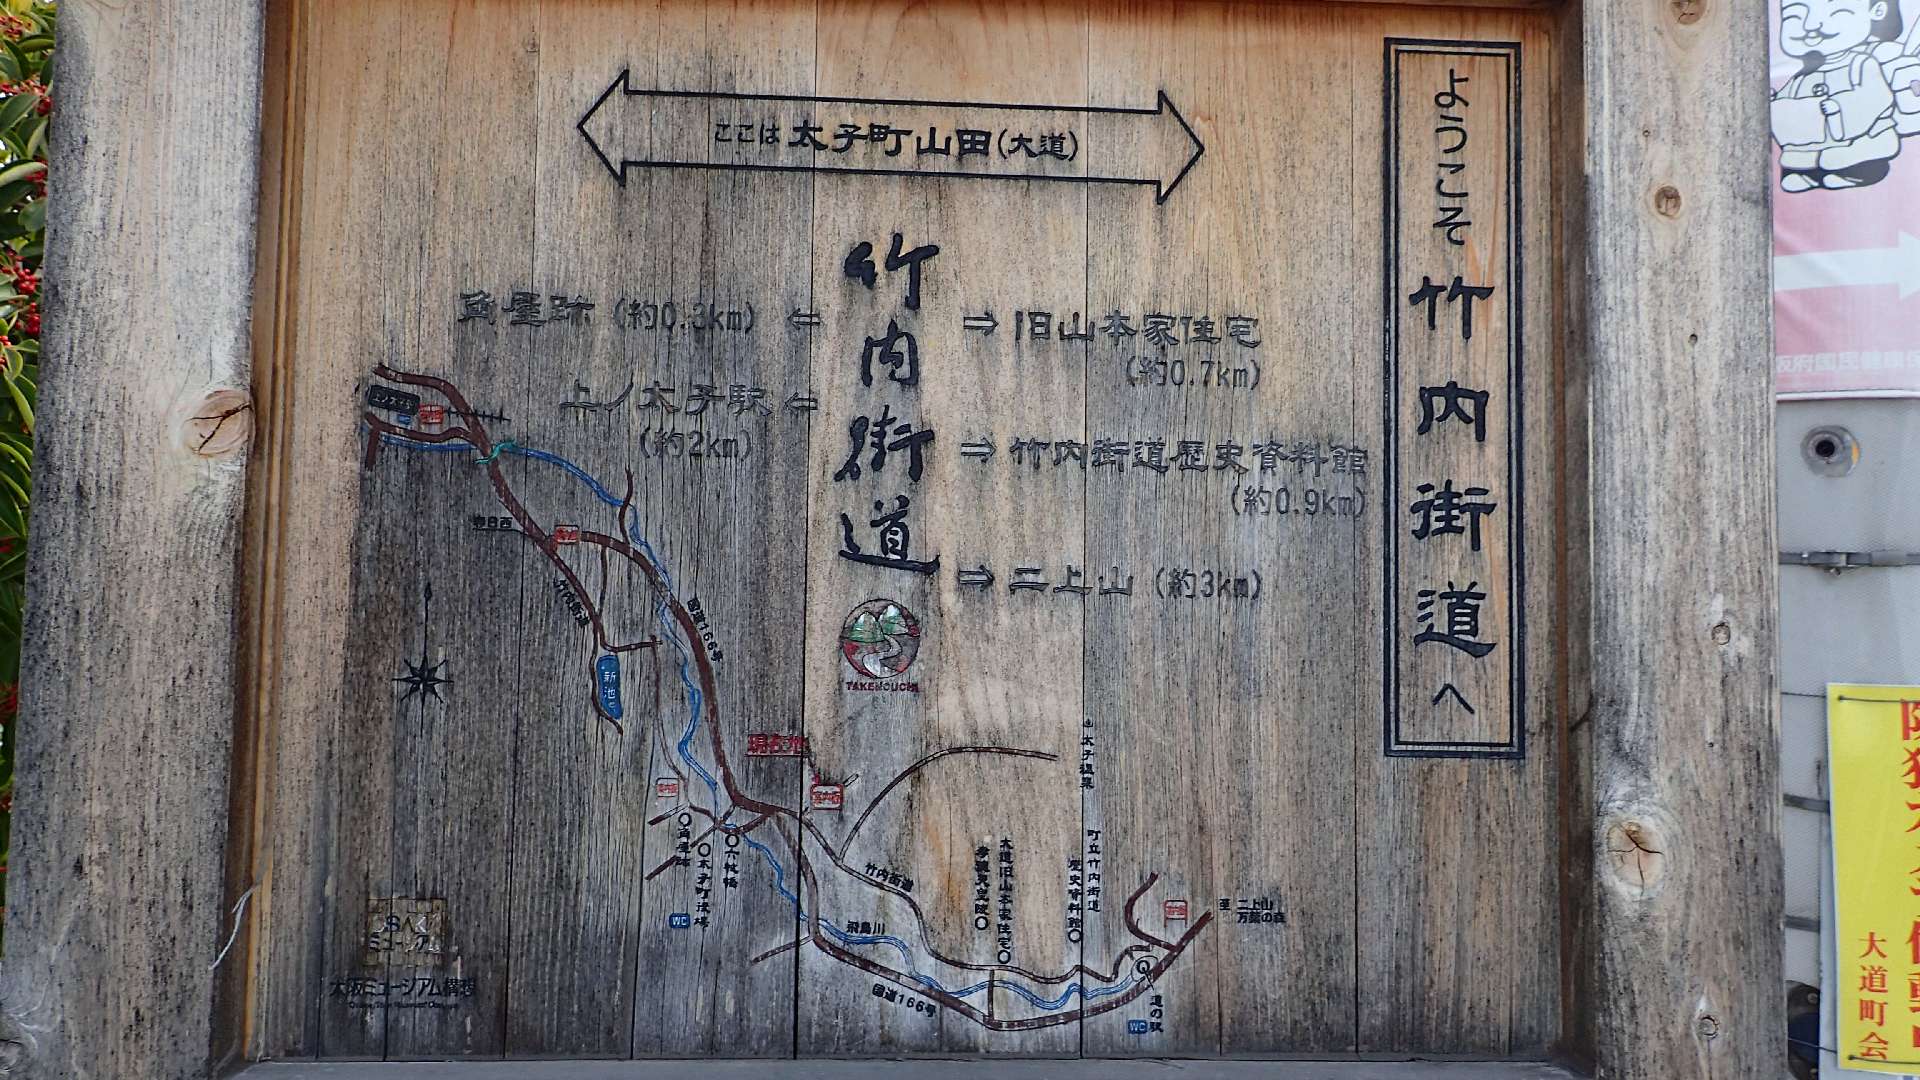 ようこそ竹内街道へ
ここは太子町山田(大道)
竹内街道
角屋跡 (約0.3km) ⇐
上ノ太子駅 ⇐
(約2km)
⇒ 旧山本家住宅
(約0.7km)
⇒ 竹内街道歴史資料館
(約0.9km)
⇒ 二上山 (約3km)
TAKENOUCHI
上ノ太子駅
春日西
竹内街道
国道166号
新池
現在地
角屋跡
太子町役場
六枚橋
WC
至太子温泉
竹内街道
飛鳥川
孝徳天皇陵
大道旧山本家住宅
町立竹内街道
歴史資料館
国道166号
至 二上山
万葉の森
道の駅
WC
ミュージアム
大阪ミュージアム構想
阪府国民健康保
大道町会